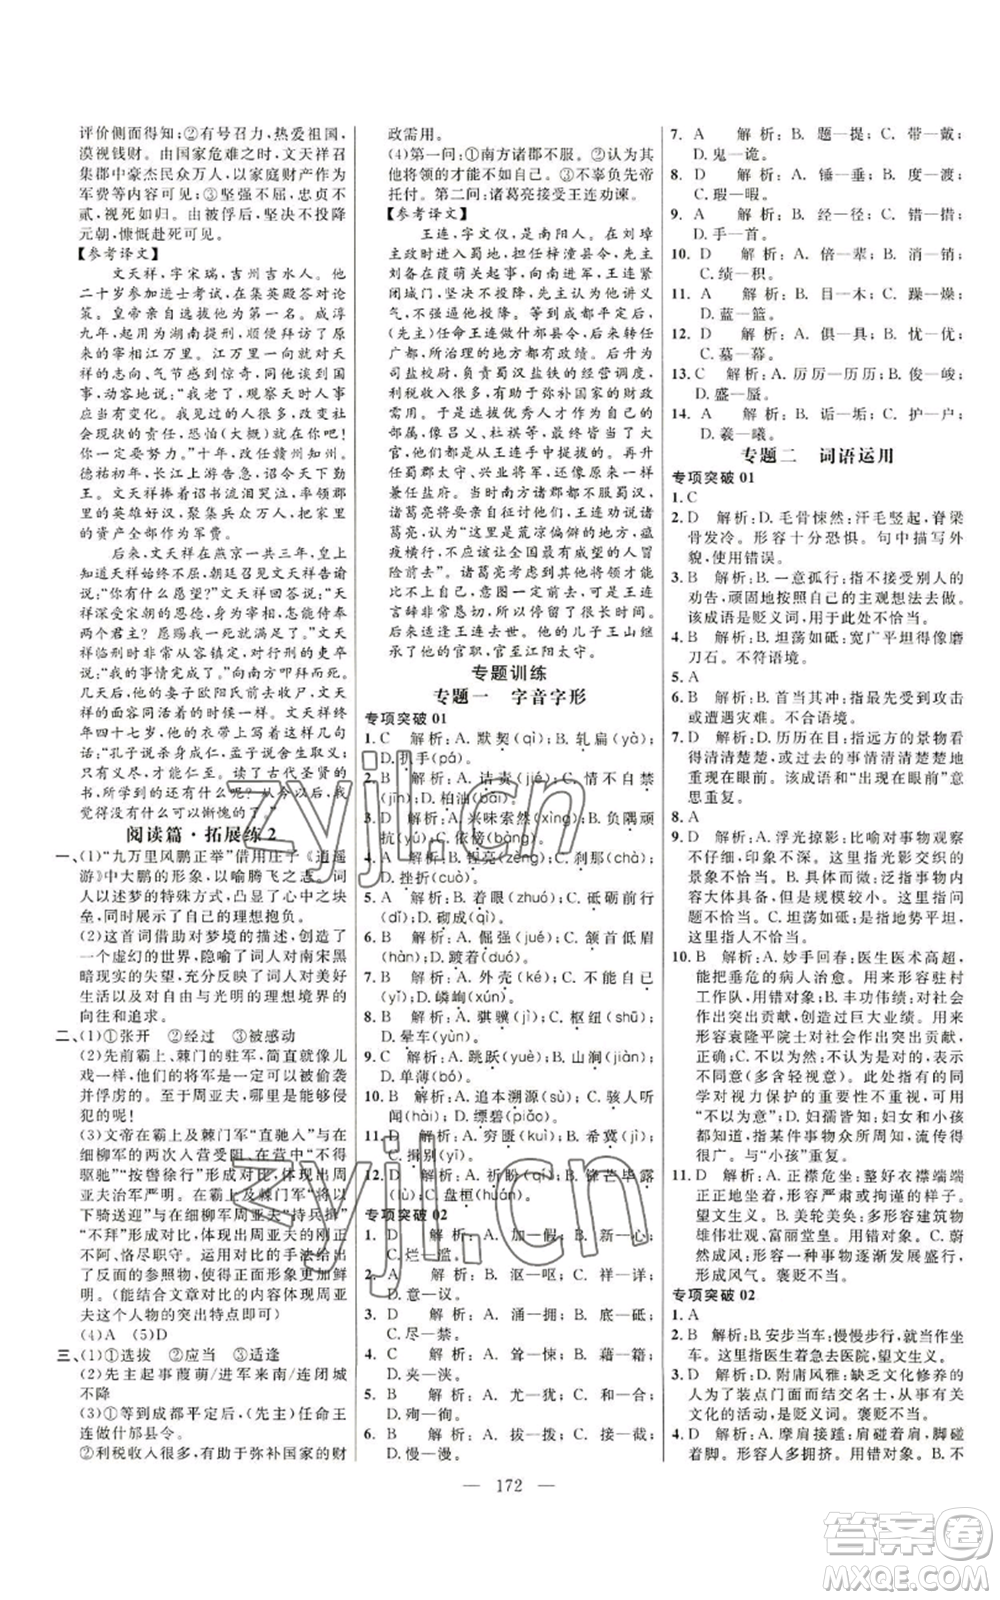 评价侧面得知;②有号召力,热爱祖国,
漠视钱财。由国家危难之时,文天祥召
集郡中豪杰民众万人,以家庭财产作为
军费等内容可见;③坚强不屈,忠贞不
贰,视死如归。由被俘后,坚决不投降
元朝,慷慨赴死可见。
【参考译文】
文天祥,字宋瑞,吉州吉水人。他
二十岁参加进士考试,在集英殿答对论
策。皇帝亲自选拔他为第一名。咸淳
九年,起用为湖南提刑,因此拜见了原
来的宰相江万里。江万里一向就对文
天祥的志向、气节感到惊奇,同他谈到国
事,动容地说:“我老了,观察天时人事
应当有变化,我看到的人很多,担任治理
世道的责任,恐怕(大概)就在你吧!你
一定要努力!”十年,改任赣州知州。
德祐初年,长江上游告急,诏令天下勤
王。文天祥捧着诏书流泪哭泣,发动郡里
的英雄好汉,聚集兵众万人,把家里
的资产全部作为军费。
后来,文天祥在燕京一共三年,皇上
知天祥始终不屈,朝廷召见文天祥告谕
说:“你有什么愿望?”文天祥回答说:“天
祥深受宋朝的恩德,身为宰相,怎能侍奉
两个君主?愿赐我一死就满足了。”文天
祥临刑时非常从容镇定,对行刑的吏卒
说:“我的事情完成了。”向南方叩拜后死
去。几天以后,他的妻子欧阳氏收拾他的
尸体,他的面容如同活的一样,终年
四十七岁,他的衣带上写着赞文
说:“孔子说杀身成仁,孟子说舍生取义,
只有尽了义,仁才会到来。读了古代圣贤的
书,学到的不是这些还有什么?从今以后,
我觉得没有什么可以惭愧的了。”
阅读篇·拓展练2
一、(1)“九万里风鹏正举”借用庄子《逍遥
游》中大鹏的形象,以喻腾飞之志。词
人以述梦的特殊方式,凸显了心中块
垒,充分展现了个人的理想抱负。
(2)这首词借助对梦境的描述,创造了
一个虚幻的世界,隐喻了词人对南宋黑
暗现实的失望,充分表达了词人对美好
生活及自由与光明的理想境界的
向往和追求。
二、(1)①张开 ②经过 ③被感动
(2)先前霸上、棘门的驻军,简直就像儿
戏一样,他们的将军是可以被偷袭
并俘虏的。至于周亚夫,怎么能够侵
犯的呢!
(3)文帝在霸上及棘门军“直驰入”与在
细柳军的两次入营受阻、在营中“不得
驱驰”“按辔徐行”对比,体现出周亚
夫治军严明。在霸上及棘门军“将以
下骑送迎”与在细柳军周亚夫“持兵揖”
“不拜”形成对比,体现出周亚夫刚正
不阿、恪尽职守。对比手法的运用,通
过反面的参照物,使得正面形象更加鲜
明。(能结合文章对比的内容体现周亚
夫这个人物的突出特点即可)
(4)A (5)D
三、(1)①选拔 ②应当 ③适逢
(2)先主起事葭萌/进军来南/连闭城
不降
(3)①等到成都平定后,(先主)任命王
连做什邡县令。
②利税收入很多,有助于弥补国家的财
政需用。
(4)第一问:①南方诸郡不服。②认为其
他将领的才能不及自己。③不辜负先帝
托付。第二问:诸葛亮接受王连劝谏。
【参考译文】
王连,字文仪,是南阳人。在刘璋
主政时进入蜀地,担任梓潼县令。先主
刘备在葭萌关起事,进军向南方进攻,
王连闭城不投降,先主讲义
气,没有强逼他。等到成都平定后,
(先主)任命王连做什邡县令。后转任
广都,所经任的地方都有政绩。后升为
司盐校尉,负责蜀汉盐铁的经营调度,
利税收入很多,有助于弥补国家的财政
需用。于是选拔优秀人才作为自己的属
官,如吕乂、杜祺等人,最终都当了大
官,都是由王连先举用的。王连升任
蜀郡太守、兴业将军,依然像以前一
样兼任盐府。当时南方诸郡不服蜀汉,诸
葛亮将要亲自征讨他们,王连劝谏诸
葛亮,认为“这里是荒凉偏僻的地方,瘟
疫横行,不应该让全国最有威望的人冒
险前去”。诸葛亮考虑诸将的才能
比不上自己,想要必定前往,但是王连
言辞非常恳切,所以停留了很长时间。
后来适逢王连去世。他的儿子王山继
承了他的官职,官至江阳太守。
专题训练
专题一 字音字形
专项突破 01
1. C 解析:A. 默契(qì);B. 轧扁(yà);
D. 扒手(pá)。
2. B 解析:A. 诘责(jié);C. 情不自禁
(jīn);D. 柏油(bǎi)。
3. D 解析:A. 兴味索然(xìng);B. 负隅顽
抗(yú);C. 依傍(bàng)。
4. A 解析:B. 锃亮(zèng);C. 刹那(chà);
D. 挫折(cuò)。
5. A 解析:B. 着眼(zhuó);C. 砥砺前行
(dǐ);D. 砌成(qì)。
6. B 解析:A. 倔强(jué);C. 颔首低眉
(hàn);D. 踱着(duó)。
7. B 解析:A. 外壳(ké);C. 不能自已
(yǐ);D. 嶙峋(xún)。
8. B 解析:A. 骐骥(jì);C. 枢纽(shū);
D. 晕车(yùn)。
9. C 解析:A. 跳跃(yuè);B. 山涧(jiàn);
D. 单薄(bó)。
10. B 解析:A. 追本溯源(sù);C. 骇人听
闻(hài);D. 缥碧(piǎo)。
11. D 解析:A. 穷匮(kuì);B. 希冀(jì);
C. 揖别(yī)。
12. D 解析:A. 祈盼(qí);B. 锋芒毕露
(lù);C. 盘桓(huán)。
专项突破 02
1. D 解析:A. 加—假;B. 新—心;
C. 烂—滥。
2. A 解析:B. 沤—呕;C. 祥—详;
D. 意—议。
3. D 解析:A. 涌—拥;B. 底—砥;
C. 尽—禁。
4. C 解析:A. 耸—悚;B. 藉—籍;
D. 夹—浃。
5. B 解析:A. 尤—犹;C. 和—合;
D. 殉—徇。
6. B 解析:A. 拔—拨;C. 躁—燥;
D. 慢—漫。
7. A 解析:B. 题—提;C. 带—戴;
D. 鬼—诡。
8. D 解析:A. 锤—垂;B. 度—渡;
C. 瑕—暇。
9. A 解析:B. 经—径;C. 错—措;
D. 手—首。
10. D 解析:A. 倍—辈;B. 消—销;
C. 绩—积。
11. A 解析:B. 目—木;C. 躁—燥;
D. 蓝—篮。
12. D 解析:A. 俱—具;B. 忧—优;
C. 墓—幕。
13. C 解析:A. 历历—厉厉;B. 俊—峻;
D. 盛—蜃。
14. A 解析:B. 诟—垢;C. 护—户;
D. 羲—曦。
专题二 词语运用
专项突破 01
1. C
2. D 解析:D. 毛骨悚然:汗毛竖起,脊梁
骨发冷。形容十分恐惧。句中描写外
貌,使用错误。
3. B 解析:B. 一意孤行:指不接受别人的
劝告,顽固地按自己的主观想法去做。
该成语是贬义词,用于此处不恰当。
4. B 解析:B. 坦荡如砥:宽广平坦得像磨
刀石。不符语境。
5. A
6. B 解析:B. 首当其冲:指最先受到攻击
或遭遇灾难。不合语境。
7. D 解析:D. 历历在目:指远方的景物看
得清清楚楚,或过去的事情清清楚楚地
重现在眼前。该成语和“出现在眼前”意
思重复。
8. A
9. D 解析:A. 浮光掠影:比喻对事物观察
不仔细,印象不深。这里指光影交织的
景象不恰当。B. 言简意赅:指说话写文
章内容丰富,但是词语简练。这里指问
题不恰当。C. 坦荡如砥:指地势平坦,
这里指人不恰当。
10. B 解析:A. 妙手回春:医生医术高超,
能把垂危的病人治愈。用来形容驻村
工作队,用错对象。B. 丰功伟绩:对社会
作出突出贡献,创造巨大业绩。用来
形容袁隆平院士对社会作出突出贡献,
正确。C. 不以为意:不放在心上,不重
视。(多含轻视意)。此处形容同学
对视力保护的重要性不重视,应用
“不以为意”;D. 妇孺皆知:妇女和小孩
都知道,指某件事物众所周知,流传广
泛。与“小孩”重复。
11. D 解析:A. 正襟危坐:整好衣襟端端
正正坐着。形容严肃或拘谨的样子。
望文生义。B. 美轮美奂:形容建筑物
雄伟壮观、富丽堂皇。用错对象。C. 蔚
然成风:形容一种事物逐渐发展盛行,
形成风气。褒贬不当。
专项突破 02
1. A
2. B 解析:B. 安步当车:慢慢步行,就当作坐
车。这里指医生着急去医院,望文生义。
3. D 解析:D. 附庸风雅:缺乏文化修养的
人为了装点门面而结交名士,从事有关
文化的活动,是贬义词。褒贬不当。
4. D 解析:A. 摩肩接踵:肩碰着肩,脚碰着
脚。形容人多拥挤。用错对象。B. 不
— 172 —
zyjl.cn
zyjl.cn
答案圈
MXQE.COM